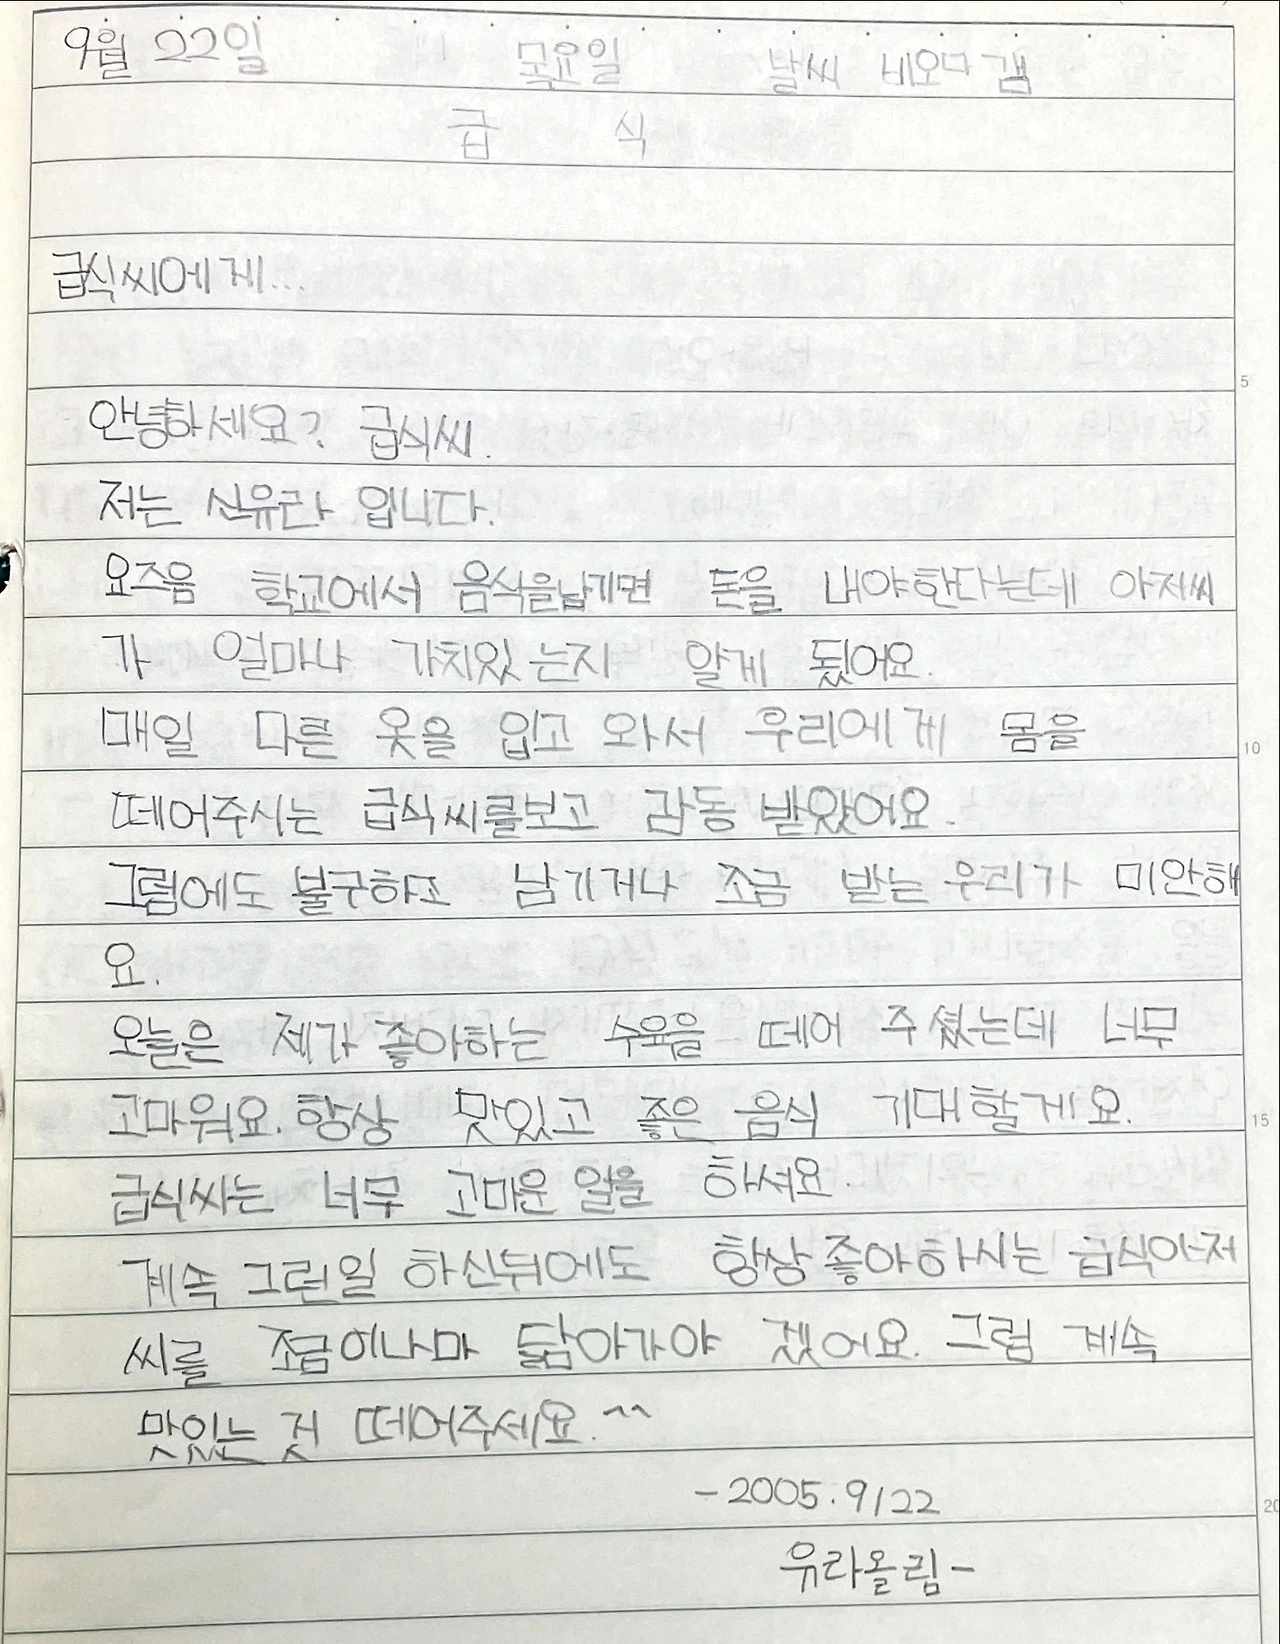 9월 22일 목요일 날씨 비오다 갬
급 식
급식씨에게...
안녕하세요? 급식씨.
저는 신유라 입니다.
5
요즈음 학교에서 음식을남기면 돈을 내야한다는데 아저씨
가 얼마나 가치있는지 알게 됬어요.
매일 다른 옷을 입고 와서 우리에게 몸을
10
떼어주시는 급식씨를보고 감동 받았어요.
그럼에도 불구하고 남기거나 조금 받는 우리가 미안해
요.
오늘은 제가 좋아하는 수육을 떼어 주셨는데 너무
고마워요. 항상 맛있고 좋은 음식 기대할게요.
15
급식씨는 너무 고마운 일을 하셔요.
계속 그런일 하신뒤에도 항상 좋아하시는 급식아저
씨를 조금이나마 닮아가야 겠어요. 그럼 계속
맛있는 것 떼어주세요. ^^
-2005. 9/22
20
유라올림-